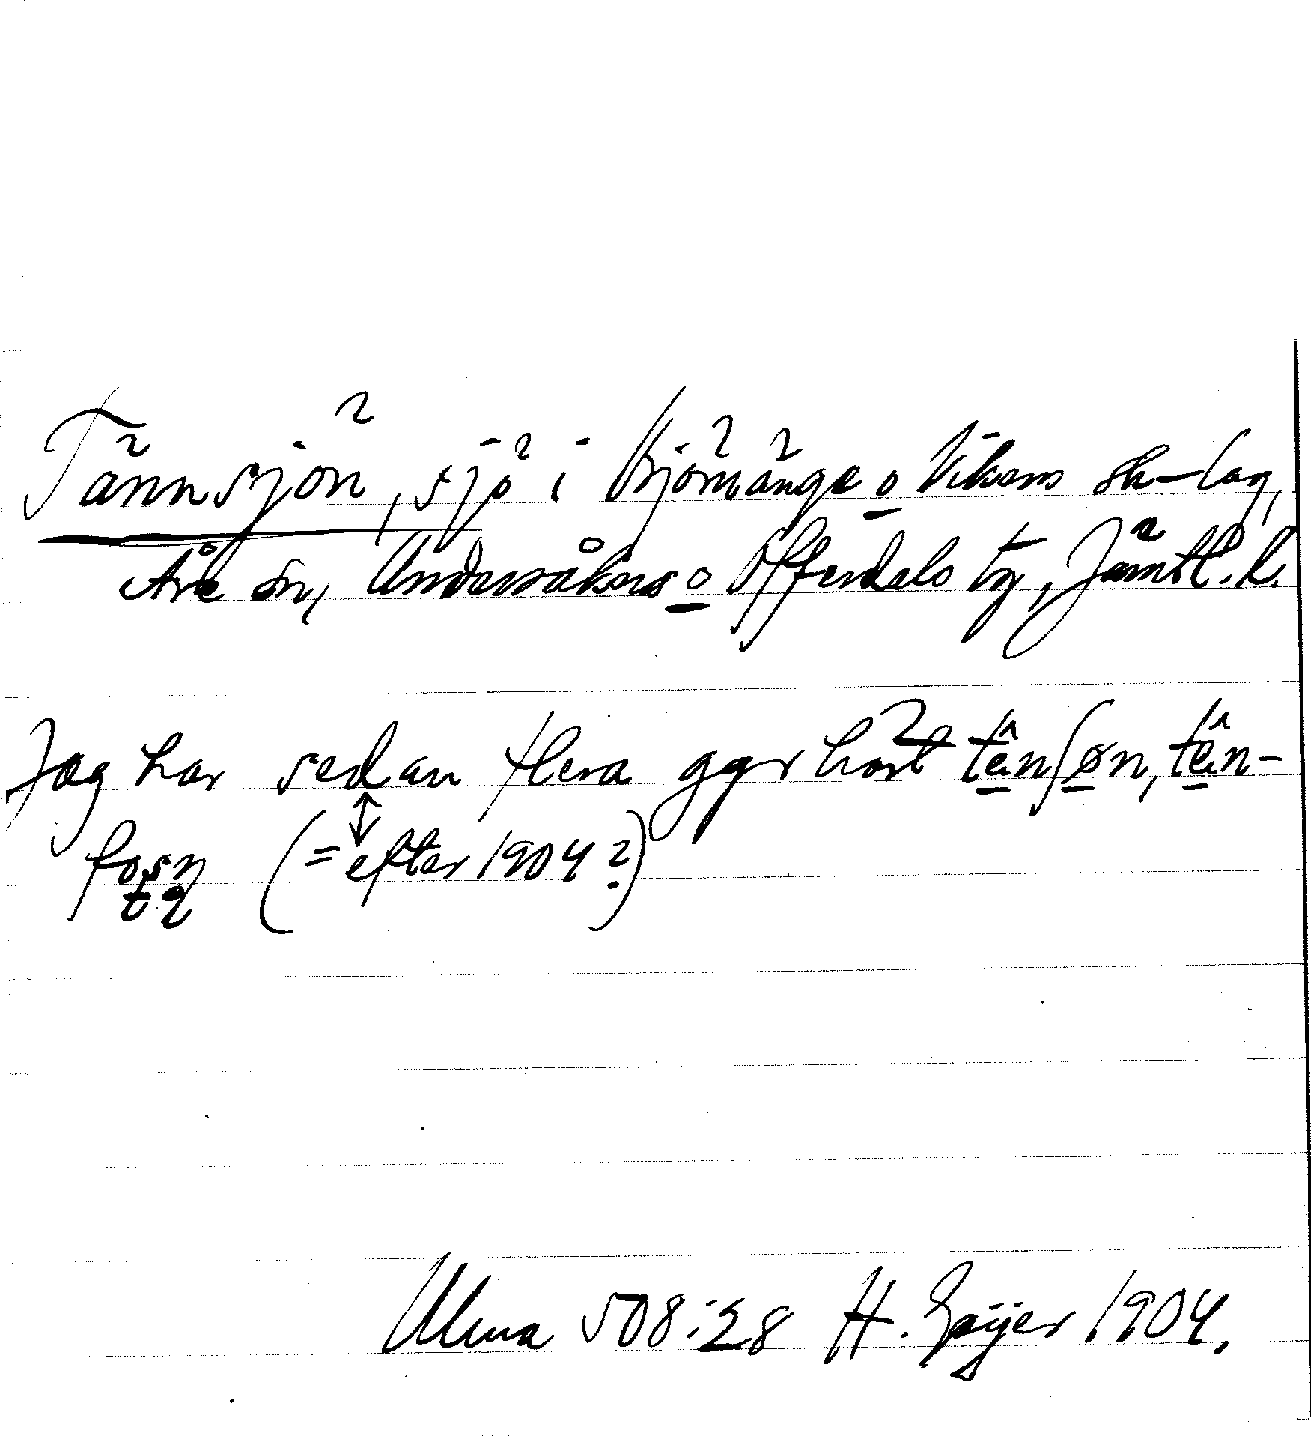 Tännsjön, sjö i Björnänge o Vikens sk-lag,
Åre sn, Undersåkers o Offerdals tg, Jämtl. l.
Jag har sedan flera ggr hört tânʃøn, tân-
fɔsn (= efter 1904?)
Ulma 508:28 H. Geijer 1904.